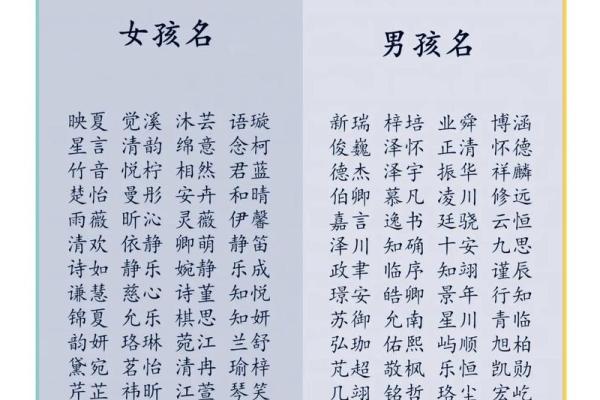 女孩名
映夏 觉溪 沐芸 语璇
星言 清韵 绵意 念柯
竹音 悦柠 相然 君蓝
楚怡 曼彤 安卉 和晴
雨薇 昕沁 灵薇 伊馨
清欢 依静 卿萌 静笛
诗如 静乐 婉静 乐成
谦慧 慈心 诗堇 知悦
锦夏 允乐 棋思 知妍
韵妍 珞琳 菀江 兰舒
黛宛 茗怡 清冉 瑜梓
芹芷 祎昕 江萱 琴笑
男孩名
新瑞 梓培 业舜 博涵
俊巍 泽怀 正清 怀德
德杰 泽宇 振华 祥麟
伯卿 慕凡 凌川 修远
嘉言 逸书 廷骁 云恒
泽川 知确 十安 九思
政聿 临序 知翊 谨辰
璟安 皓卿 景年 行知
苏御 允南 星川 青临
弘珈 佑熙 屿顺 旭柏
芃超 敬枫 乐恒 凯勋
几翊 铭哲 珞尘 宏屹